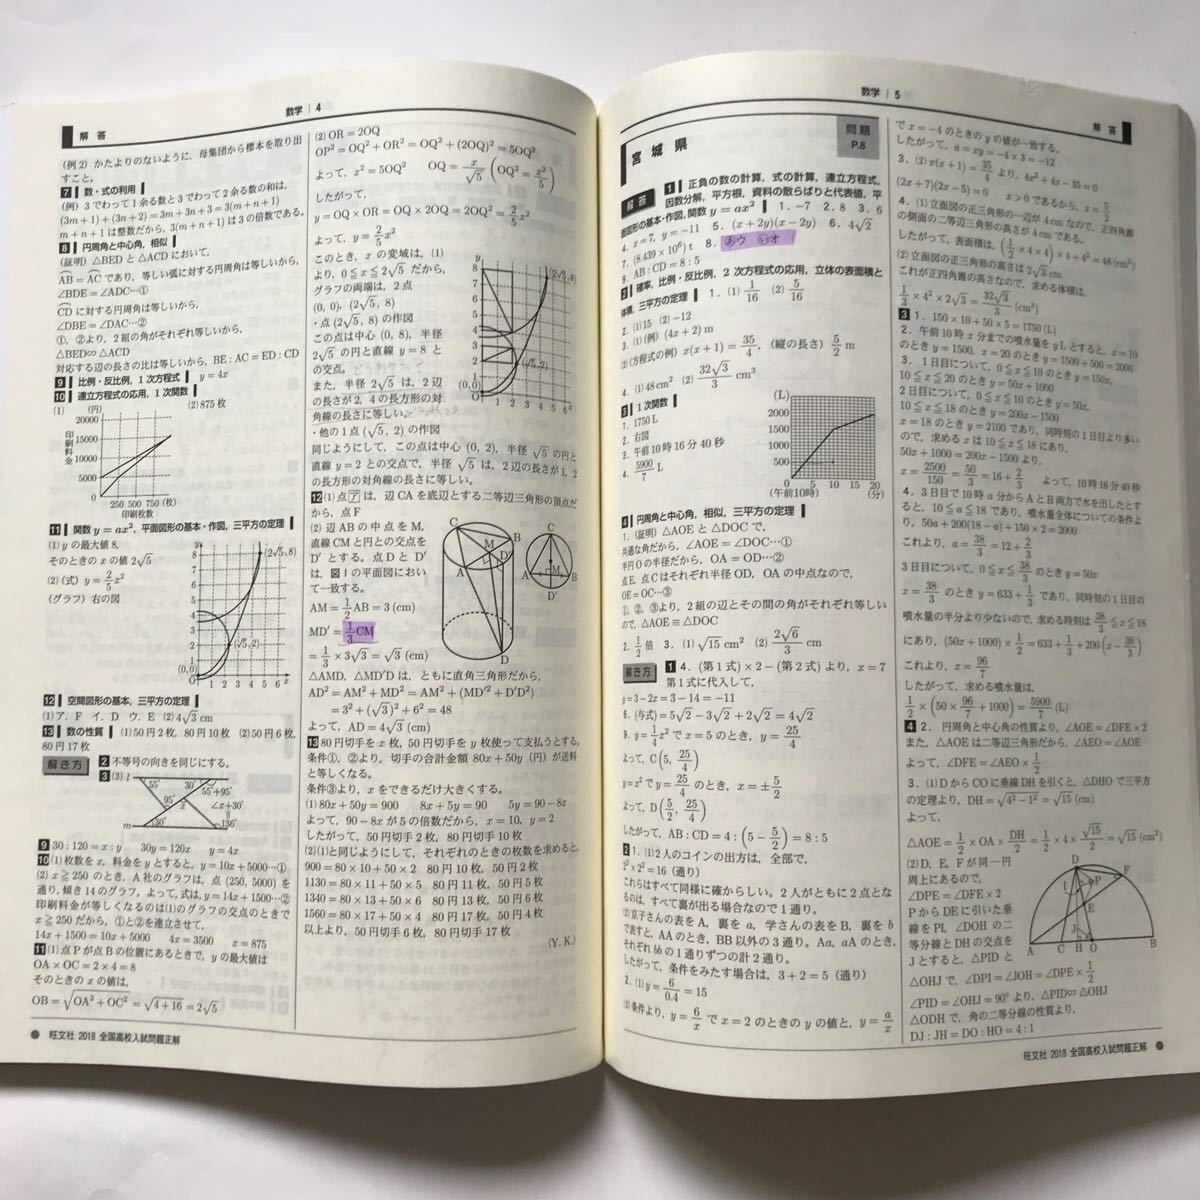 数学 | 4
解 答
(例2) かたよりのないように，母集団から標本を取り出
すこと。
7 数・式の利用
(例) 3でわって1余る数と3でわって2余る数の和は，
(3m+1)+(3n+2)=3m+3n+3=3(m+n+1)
m+n+1は整数だから，3(m+n+1)は3の倍数である。
8 円周角と中心角，相似
(証明) △BEDと△ACDにおいて，
AB=ACであり，等しい弧に対する円周角は等しいから，
∠BDE=∠ADC…①
CDに対する円周角は等しいから，
∠DBE=∠DAC…②
①，②より，2組の角がそれぞれ等しいから，
△BED∽△ACD
対応する辺の長さの比は等しいから，BE：AC=ED：CD
9 比例・反比例，1次方程式 y=4x
10 連立方程式の応用，1次関数
(1) (円) (2) 875枚
20000
印刷料金
15000
10000
5000
0
250 500 750 (枚)
印刷枚数
11 関数y=ax²，平面図形の基本・作図，三平方の定理
(1) yの最大値8，
そのときのxの値2√5
(2) (式) y=2/5x²
(グラフ) 右の図
(2√5, 8)
(√5, 2)
(0, 0)
12 空間図形の基本，三平方の定理
(1) ア. F イ. D ウ. E (2) 4√3 cm
13 数の性質 (1) 50円2枚，80円10枚 (2) 50円6枚，
80円17枚
解き方 2 不等号の向きを同じにする。
3 (3) l
55° 30° 55°+95°
95° ∠x+30°
m 30° 136°
9 30：120=x：y 30y=120x y=4x
10 (1) 枚数をx，料金をyとすると，y=10x+5000…①
(2) x≧250のとき，A社のグラフは，点(250, 5000)を
通り，傾き14のグラフ。よって，式は，y=14x+1500…②
印刷料金が等しくなるのは(1)のグラフの交点のときで
x≧250だから，①と②を連立させて，
14x+1500=10x+5000 4x=3500 x=875
11 (1) 点Pが点Bの位置にあるときで，yの最大値は
OA×OC=2×4=8
そのときのxの値は，
OB=√(OA²+OC²)=√(4+16)=2√5
(2) OR=2OQ
OP²=OQ²+OR²=OQ²+(2OQ)²=5OQ²
よって，x²=5OQ² OQ=x/√5 (OQ²=x²/5)
したがって，
y=OQ×OR=OQ×2OQ=2OQ²=2/5x²
よって，y=2/5x²
このとき，xの変域は，(1)
より，0≦x≦2√5だから，
グラフの両端は，2点
(0, 0)，(2√5, 8)
・点(2√5, 8)の作図
この点は中心(0, 8)，半径
2√5の円と直線y=8と
の交点。
また，半径2√5は，2辺
の長さが2，4の長方形の対
角線の長さに等しい。
・他の1点(√5, 2)の作図
同じようにして，この点は中心(0, 2)，半径√5の円と
直線y=2との交点で，半径√5は，2辺の長さが1，2
の長方形の対角線の長さに等しい。
(2√5, 8)
(√5, 2)
(0, 0)
12 (1) 点アは，辺CAを底辺とする二等辺三角形の頂点だ
から，点F
(2) 辺ABの中点をM，
直線CMと円との交点を
D'とする。点DとD'
は，図Iの平面図におい
て一致する。
AM=1/2AB=3 (cm)
MD'=1/3CM
=1/3×3√3=√3 (cm)
△AMD，△MD'Dは，ともに直角三角形だから，
AD²=AM²+MD²=AM²+(MD'²+D'D²)
=3²+(√3)²+6²=48
よって，AD=4√3 (cm)
13 80円切手をx枚，50円切手をy枚使って支払うとする。
条件①，②より，切手の合計金額80x+50y (円)が送料
と等しくなる。
条件③より，xをできるだけ大きくする。
(1) 80x+50y=900 8x+5y=90 5y=90-8x
よって，90-8xが5の倍数だから，x=10，y=2
したがって，50円切手2枚，80円切手10枚
(2) (1)と同じようにして，それぞれのときの枚数を求めると，
900=80×10+50×2 80円10枚，50円2枚
1130=80×11+50×5 80円11枚，50円5枚
1340=80×13+50×6 80円13枚，50円6枚
1560=80×17+50×4 80円17枚，50円4枚
以上より，50円切手6枚，80円切手17枚
(Y. K.)
旺文社 2018 全国高校入試問題正解
数学 | 5
解 答
宮 城 県
問題
P.8
解答 1 正負の数の計算，式の計算，連立方程式，
因数分解，平方根，資料の散らばりと代表値，平
面図形の基本・作図，関数y=ax² 1. -7 2. 8 3. 6
4. x=7, y=-11 5. (x+2y)(x-2y) 6. 4√2
7. (8.439×10⁶) t 8. あウ いオ
9. AB：CD=8：5
2 確率，比例・反比例，2次方程式の応用，立体の表面積と
体積，三平方の定理 1. (1) 1/16 (2) 5/16
2. (1) 15 (2) -12
3. (1) (例) (4x+2) m
(2) (方程式の例) x(x+1)=35/4，(縦の長さ) 5/2 m
4. (1) 48 cm² (2) 32√3/3 cm³
3 1次関数
1. 1750 L
2. 右図
3. 午前10時16分40秒
4. 5900/7 L
(L)
2000
1500
1000
500
0 5 10 15 20
(午前10時) (分)
4 円周角と中心角，相似，三平方の定理
1. (証明) △AOEと△DOCで，
共通な角だから，∠AOE=∠DOC…①
半円Oの半径だから，OA=OD…②
点E，点Cはそれぞれ半径OD，OAの中点なので，
OE=OC…③
①，②，③より，2組の辺とその間の角がそれぞれ等しい
ので，△AOE≡△DOC
2. 1/2倍 3. (1) √15 cm² (2) 2√6/3 cm
解き方 1 4. (第1式)×2-(第2式)より，x=7
第1式に代入して，
y=3-2x=3-14=-11
6. (与式)=5√2-3√2+2√2=4√2
9. y=1/4x²でx=5のとき，y=25/4
よって，C(5, 25/4)
y=x²でy=25/4のとき，x=±5/2
よって，D(5/2, 25/4)
したがって，AB：CD=4：(5-5/2)=8：5
2 1. (1) 2人のコインの出方は，全部で，
2²×2²=16 (通り)
これらはすべて同様に確からしい。2人がともに2点とな
るのは，すべて裏が出る場合なので1通り。
(2) 京子さんの表をA，裏をa，学さんの表をB，裏をb
で表すと，AAのとき，BB以外の3通り。Aa，aAのとき，
それぞれbbの1通りずつの計2通り。
したがって，条件をみたす場合は，3+2=5 (通り)
2. (1) y=6/0.4=15
(2) 条件より，y=6/xでx=2のときのyの値と，y=a/x
でx=-4のときのyの値が一致する。
したがって，a=xy=-4×3=-12
3. (2) x(x+1)=35/4より，4x²+4x-35=0
(2x+7)(2x-5)=0 x>0であるから，x=5/2
4. (1) 立面図の正三角形の一辺が4cmなので，正四角錐
の側面の二等辺三角形の高さが4cmである。
したがって，表面積は，(1/2×4×4)×4+4²=48 (cm²)
(2) 立面図の正三角形の高さは2√3 cm
これが正四角錐の高さなので，求める体積は，
1/3×4²×2√3=32√3/3 (cm³)
3 1. 150×10+50×5=1750 (L)
2. 午前10時x分までの噴水量をyLとすると，x=10
のときy=1500，x=20のときy=1500+500=2000
3. 1日目について，0≦x≦10のときy=150x，
10≦x≦20のときy=50x+1000
2日目について，0≦x≦10のときy=50x，
10≦x≦18のときy=200x-1500
x=18のときy=2100であり，同時刻の1日目より多い
ので，求めるxは10≦x≦18にあり，
50x+1000=200x-1500より，
x=2500/150=50/3=16+2/3 よって，10時16分40秒
4. 3日目で10時a分からAとB両方で水を出したとす
ると，10≦a≦18であり，噴水量全体についての条件よ
り，50a+200(18-a)+150×2=2000
これより，a=38/3=12+2/3
3日目について，0≦x≦38/3のときy=50x
x=38/3のときy=633+1/3であり，同時刻の1日目の
噴水量の半分より少ないので，求める時刻は38/3≦x≦18
にあり，(50x+1000)×1/2=633+1/3+200(x-38/3)
これより，x=96/7
したがって，求める噴水量は，
1/2×(50×96/7+1000)=5900/7 (L)
4 2. 円周角と中心角の性質より，∠AOE=∠DFE×2
また，△AOEは二等辺三角形だから，∠AEO=∠AOE
よって，∠DFE=∠AEO×1/2
3. (1) DからCOに垂線DHを引くと，△DHOで三平方
の定理より，DH=√(4²-1²)=√15 (cm)
よって，
△AOE=1/2×OA×DH/2=1/2×4×√15/2=√15 (cm²)
(2) D，E，Fが同一円
周上にあるので，
∠DPE=∠DFE×2
PからDEに引いた垂
線をPI，∠DOHの二
等分線とDHの交点を
Jとすると，△PIDと
△OHJで，∠DPI=∠JOH=∠DPE×1/2
∠PID=∠OHJ=90°より，△PID∽△OHJ
△ODHで，角の二等分線の性質より，
DJ：JH=DO：HO=4：1
旺文社 2018 全国高校入試問題正解